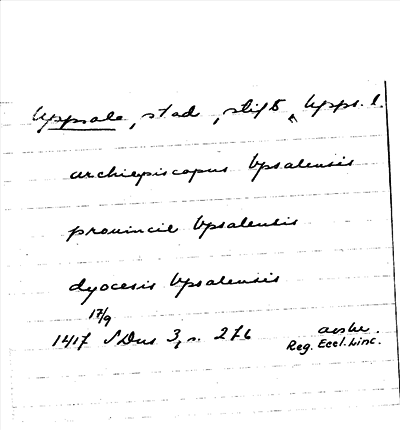 Uppsala, stad, stift, Upps. l.
archiepiscopus Vpsalensis
prouincie Vpsalensis
dyocesis Vpsalensis
17/9
1417 SDns 3, s. 276 avskr.
Reg. Eccl. Linc.